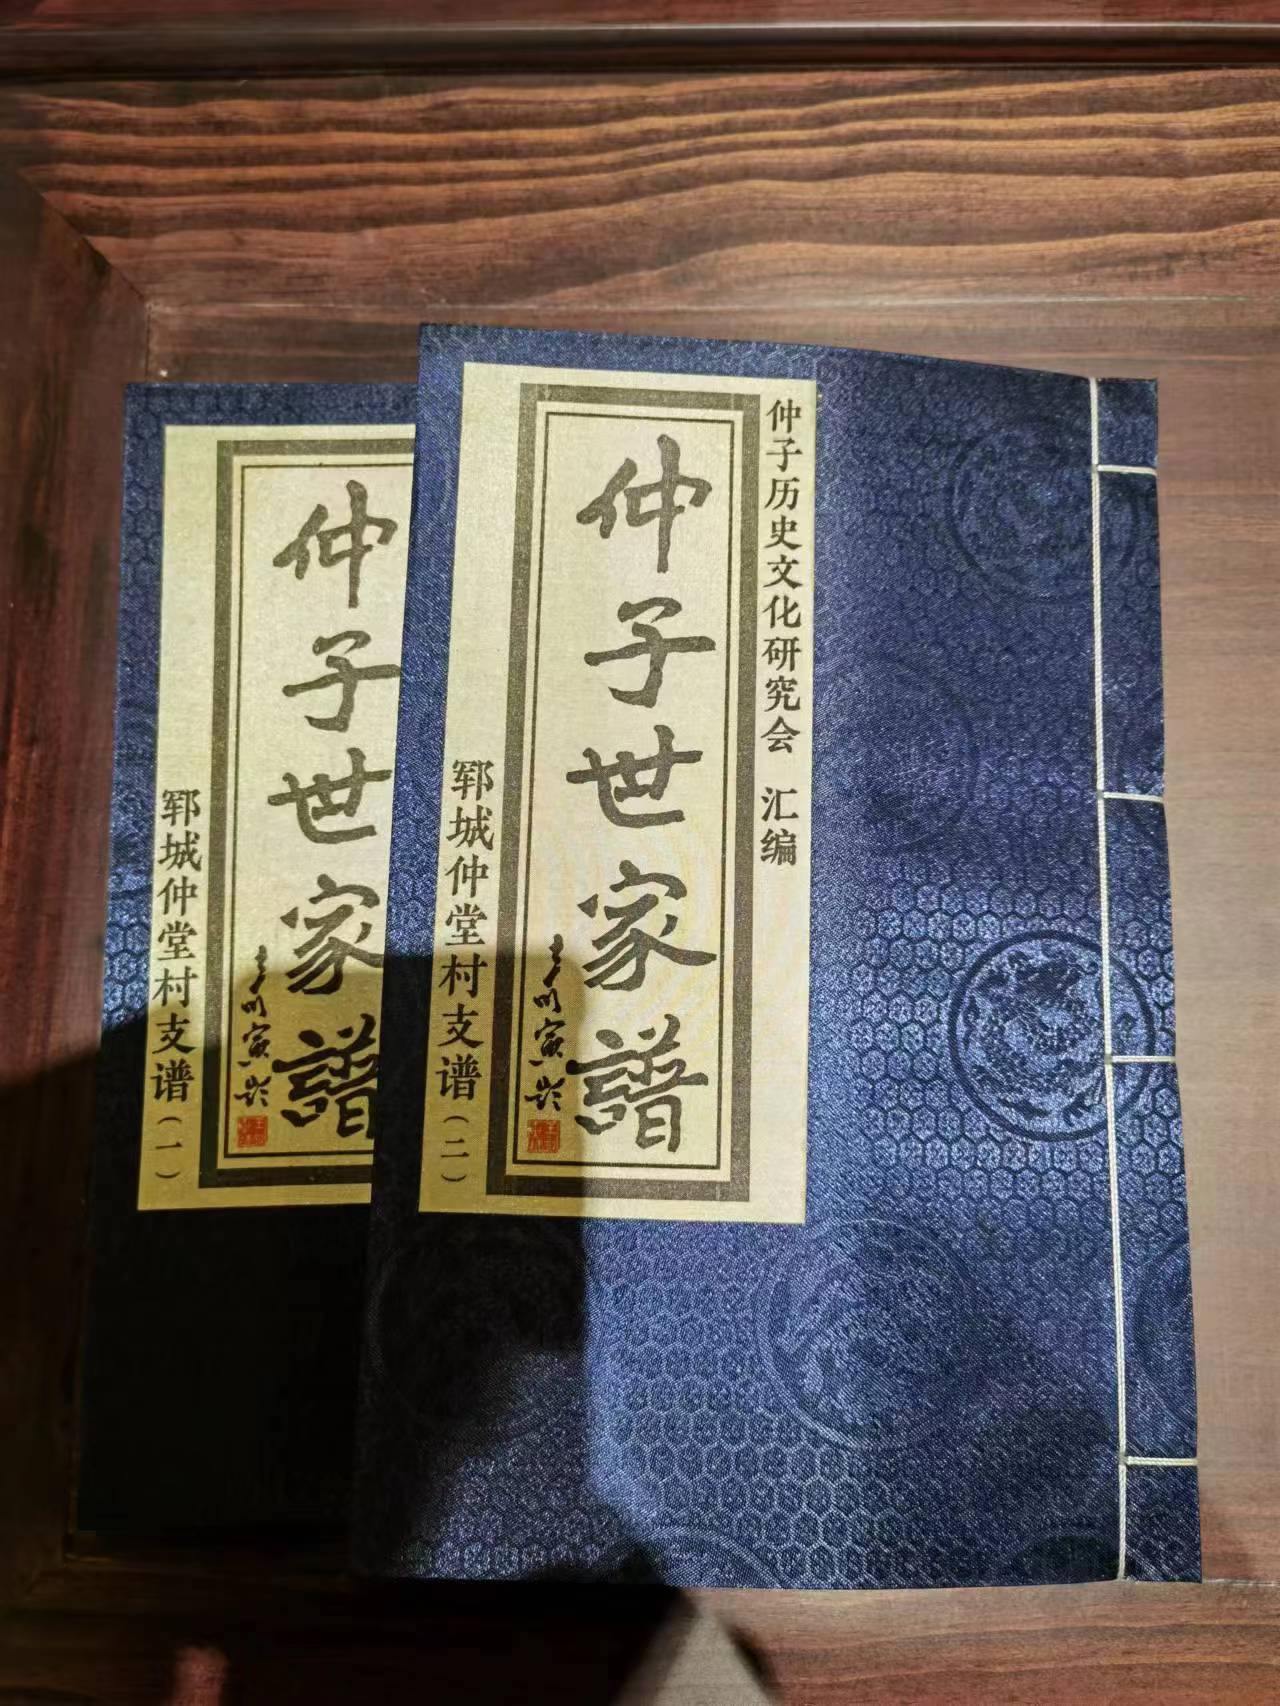 仲子历史文化研究会 汇编
仲子世家譜
郓城仲堂村支谱（二）
仲子世家譜
郓城仲堂村支谱（一）